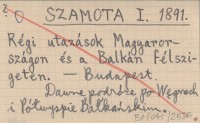 SZAMOTA I. 1891.
Régi utazások Magyaror-
szágon és a Balkán Félszi-
geten. — Budapest.
Dawne podróże po Węgrzech
i Półwyspie Bałkańskim.